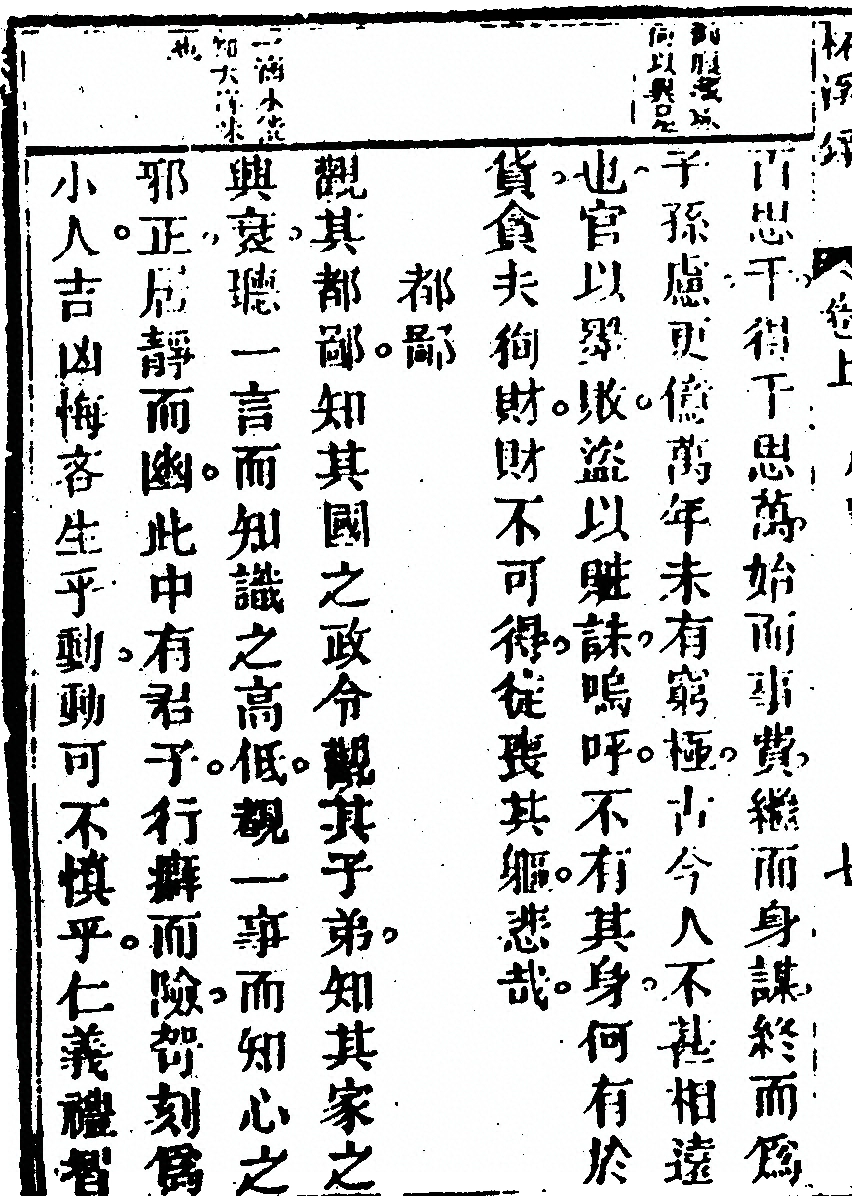 剖腹藏珠
何以異是
一滴水能
知大海味
也
百思千得千思萬始而事費繼而身謀終而爲
子孫慮更億萬年未有窮極古今人不甚相遠
也官以墨敗盜以賍誅嗚呼不有其身何有於
貨貪夫徇財財不可得徒喪其軀悲哉
都鄙
觀其都鄙知其國之政令觀其子弟知其家之
興衰聽一言而知識之高低觀一事而知心之
邪正居靜而幽此中有君子行癖而險苛刻爲
小人吉凶悔吝生乎動動可不慎乎仁義禮智